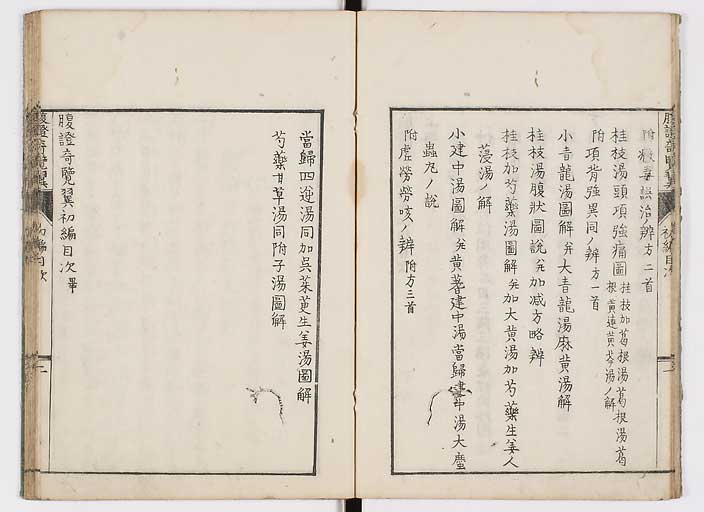 附 誤治ノ辨方二首
桂枝湯頭項強痛圖 桂枝加葛根湯葛根湯葛
根黄連黄芩湯ノ解
附項背強異同ノ辨方一首
小青龍湯圖解并大青龍湯麻黄湯解
桂枝湯腹狀圖說并加减方略辨
桂枝加芍藥湯圖解并加大黄湯加芍藥生姜人
湯ノ解
小建中湯圖解并黄蓍建中湯當歸建中湯大
蟲丸ノ說
附虚勞勞咳ノ辨 附方三首
腹證奇覽翼
初編目次
當歸四逆湯同加吳茱萸生姜湯圖解
芍藥甘草湯同附子湯圖解
腹證奇覽翼初編目次畢
腹證奇覽翼
初編目次